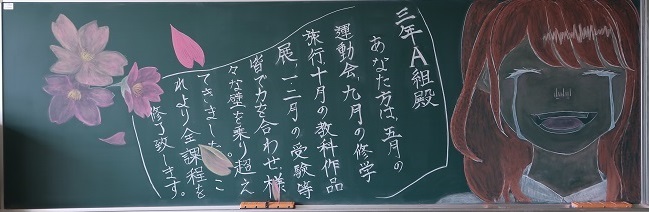 三年A組殿
あなた方は、五月の
運動会、九月の修学
旅行、十月の教科作品
展、一二月の受験等
様々な壁を乗り超え
皆で力を合わせ
てきました。こ
れより全課程を
修了致します。